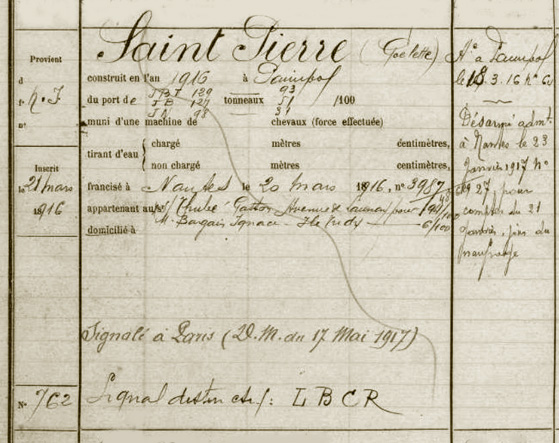 Saint Pierre (Goëlette)
Provient
d
N. F
n°
construit en l'an 1916 à Paimpol
du port de JBT 129 tonneaux 93 /100
JB 127 51
JN 98 31
muni d'une machine de chevaux (force effectuée)
tirant d'eau { chargé mètres centimètres,
non chargé mètres centimètres,
Inscrit
le 21 mars
1916
francisé à Nantes le 20 mars 1916, n° 3987
appartenant aux Thulec Gaston Avenue pour 194/100
M. Bargain Ignace - Ile Tudy 6/100
domicilié à
Signalé à Paris (D.M. du 17 Mai 1917)
N° 762
Signal distinctif: L B C R
At° à Paimpol
le 18.3.16 N° 60
Désarmé admt.
à Nantes le 23
janvier 1917 N°
27 pour
compter du 21
janvier, jour du
naufrage